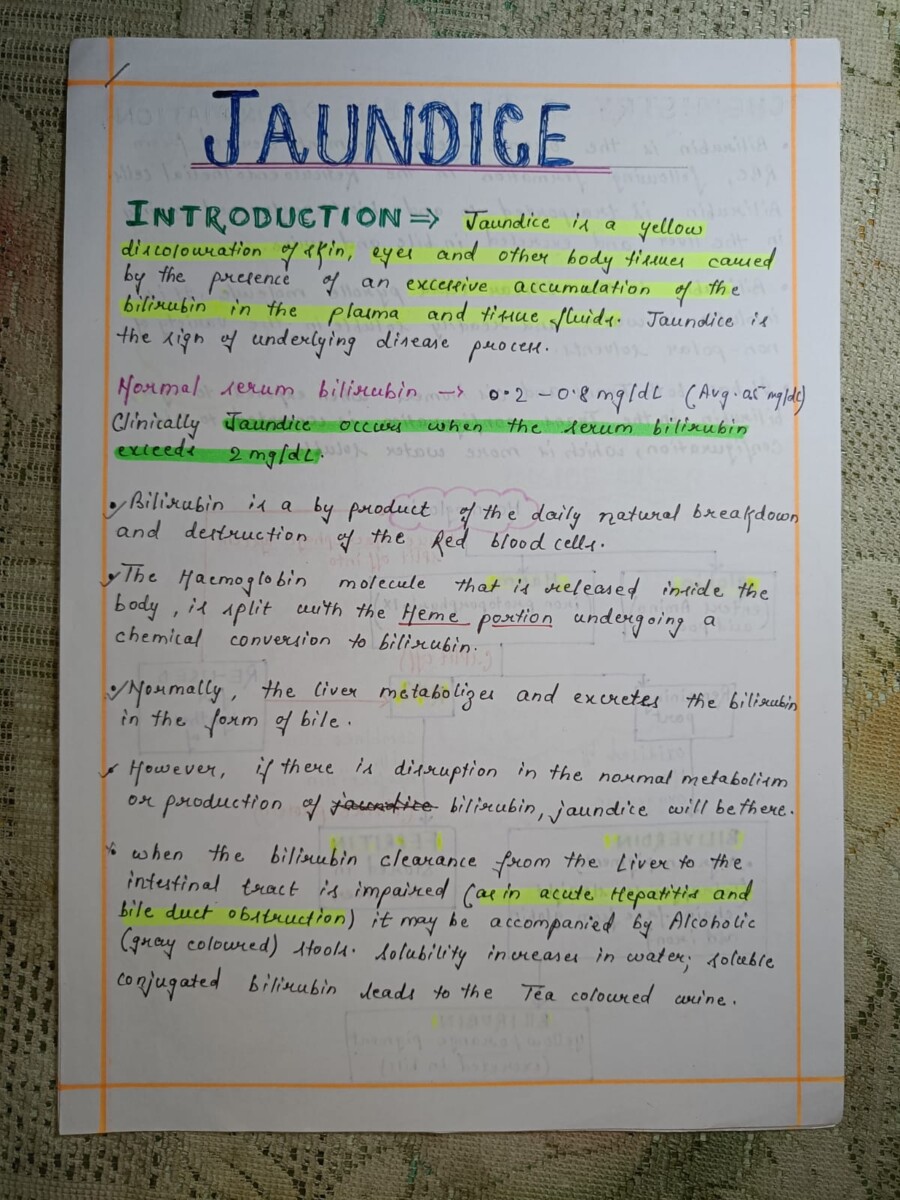 JAUNDICE
INTRODUCTION ⇒ Jaundice is a yellow
discolouration of skin, eyes and other body tissues caused
by the presence of an excessive accumulation of the
bilirubin in the plasma and tissue fluids. Jaundice is
the sign of underlying disease process.
Normal serum bilirubin → 0.2 - 0.8 mg/dL (Avg. 0.5 mg/dL)
Clinically Jaundice occurs when the serum bilirubin
exceeds 2 mg/dL.
Bilirubin is a by product of the daily natural breakdown
and destruction of the Red blood cells.
The Haemoglobin molecule that is released inside the
body, is split with the Heme portion undergoing a
chemical conversion to bilirubin.
Normally, the liver metabolizes and excretes the bilirubin
in the form of bile.
However, if there is disruption in the normal metabolism
or production of jaundice bilirubin, jaundice will be there.
when the bilirubin clearance from the Liver to the
intestinal tract is impaired (as in acute Hepatitis and
bile duct obstruction) it may be accompanied by Alcoholic
(gray coloured) stools. solubility increases in water; soluble
conjugated bilirubin leads to the Tea coloured urine.